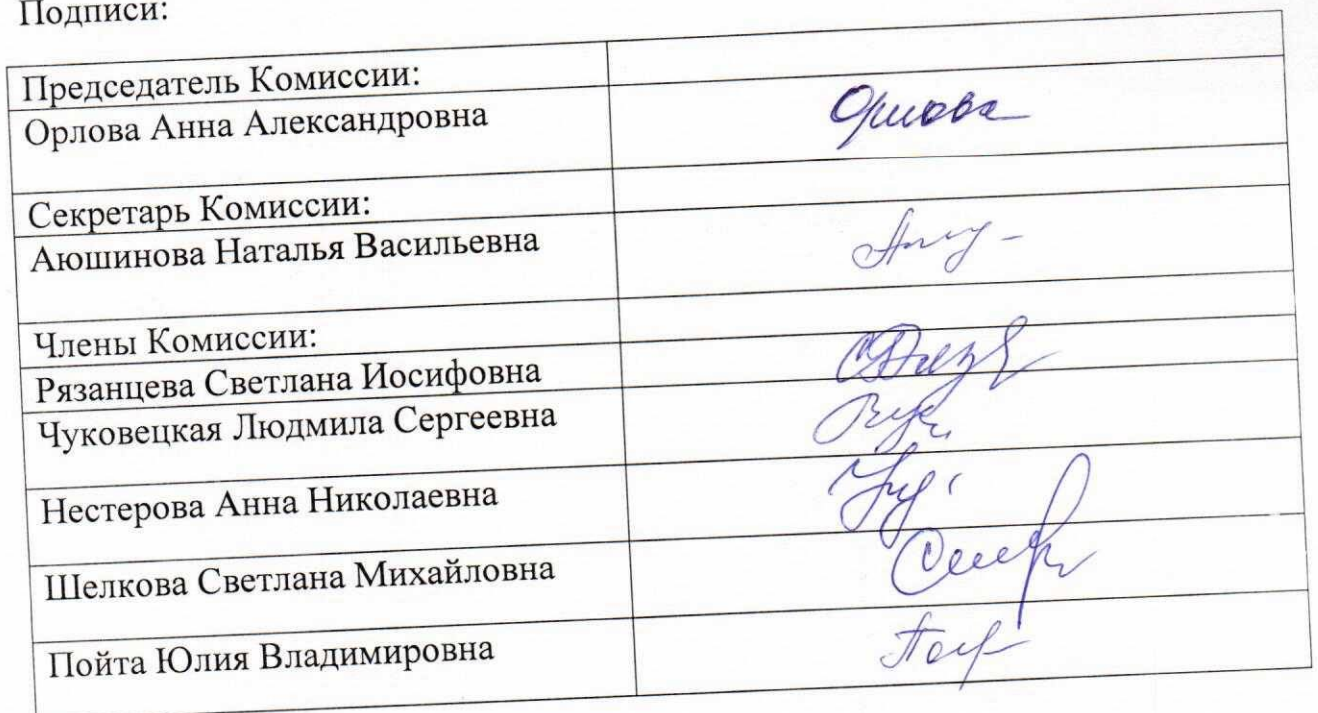 Подписи:
Председатель Комиссии:
Орлова Анна Александровна
Орлова
Секретарь Комиссии:
Аюшинова Наталья Васильевна
Члены Комиссии:
Рязанцева Светлана Иосифовна
Чуковецкая Людмила Сергеевна
Нестерова Анна Николаевна
Шелкова Светлана Михайловна
Пойта Юлия Владимировна